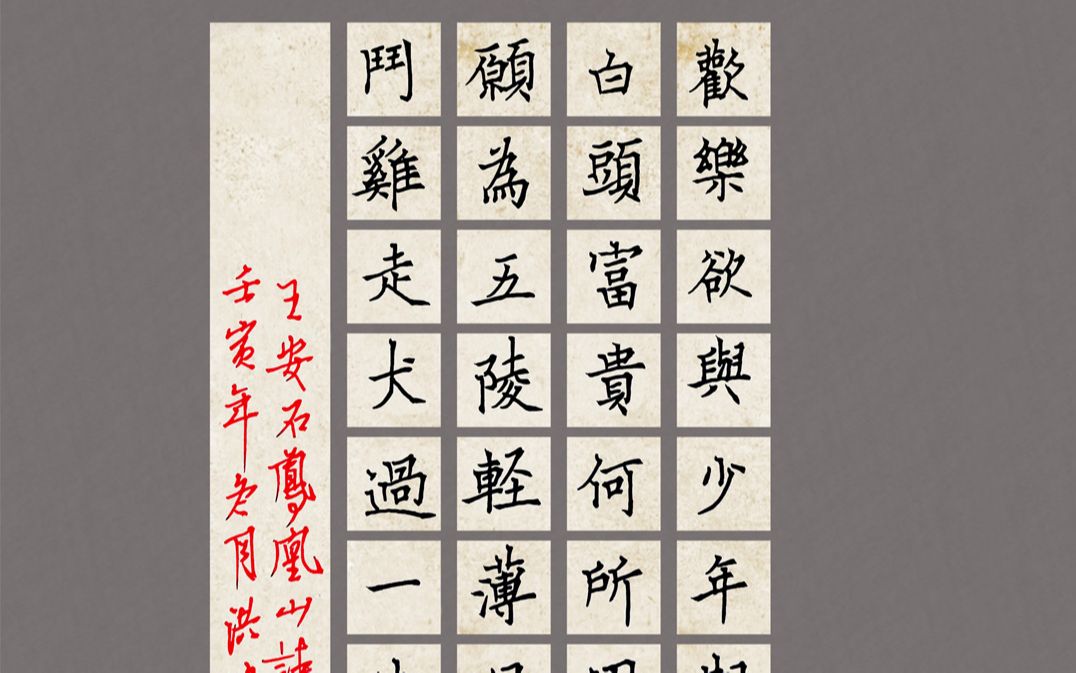 歡樂欲與少年
白頭富貴何所
願為五陵輕薄
鬥雞走犬過一
王安石鳳凰山詩
壬寅年冬月洪